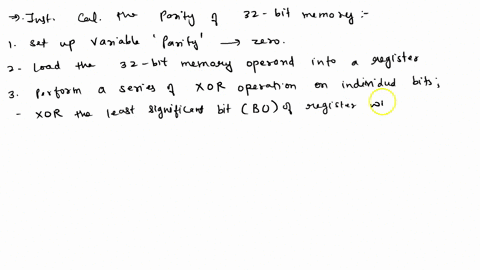 →. Inst. Cal. the Parity of 32-bit memory :-
1. Set up variable 'Parity' → zero.
2- Load the 32-bit memory operand into a register
3. Perform a series of XOR operation on individual bits;
- XOR the least significant bit (B0) of register wi